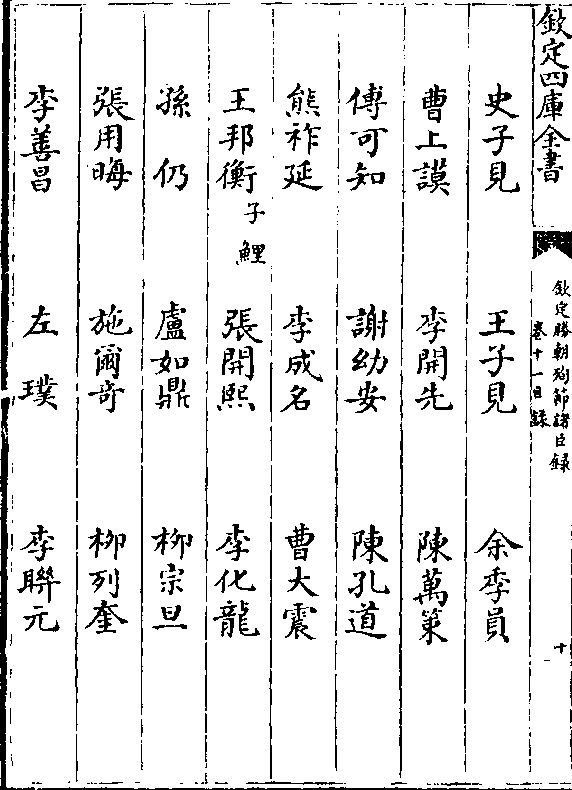 欽定四庫全書
欽定勝朝殉節諸臣錄
卷十一目錄
十
史子見 王子見 余季員
曹上謨 李開先 陳萬策
傅可知 謝幼安 陳孔道
熊祚延 李成名 曹大震
王邦衡子鯉 張開熙 李化龍
孫仍 盧如鼎 柳宗旦
張用晦 施爾奇 柳列奎
李善昌 左璞 李聯元